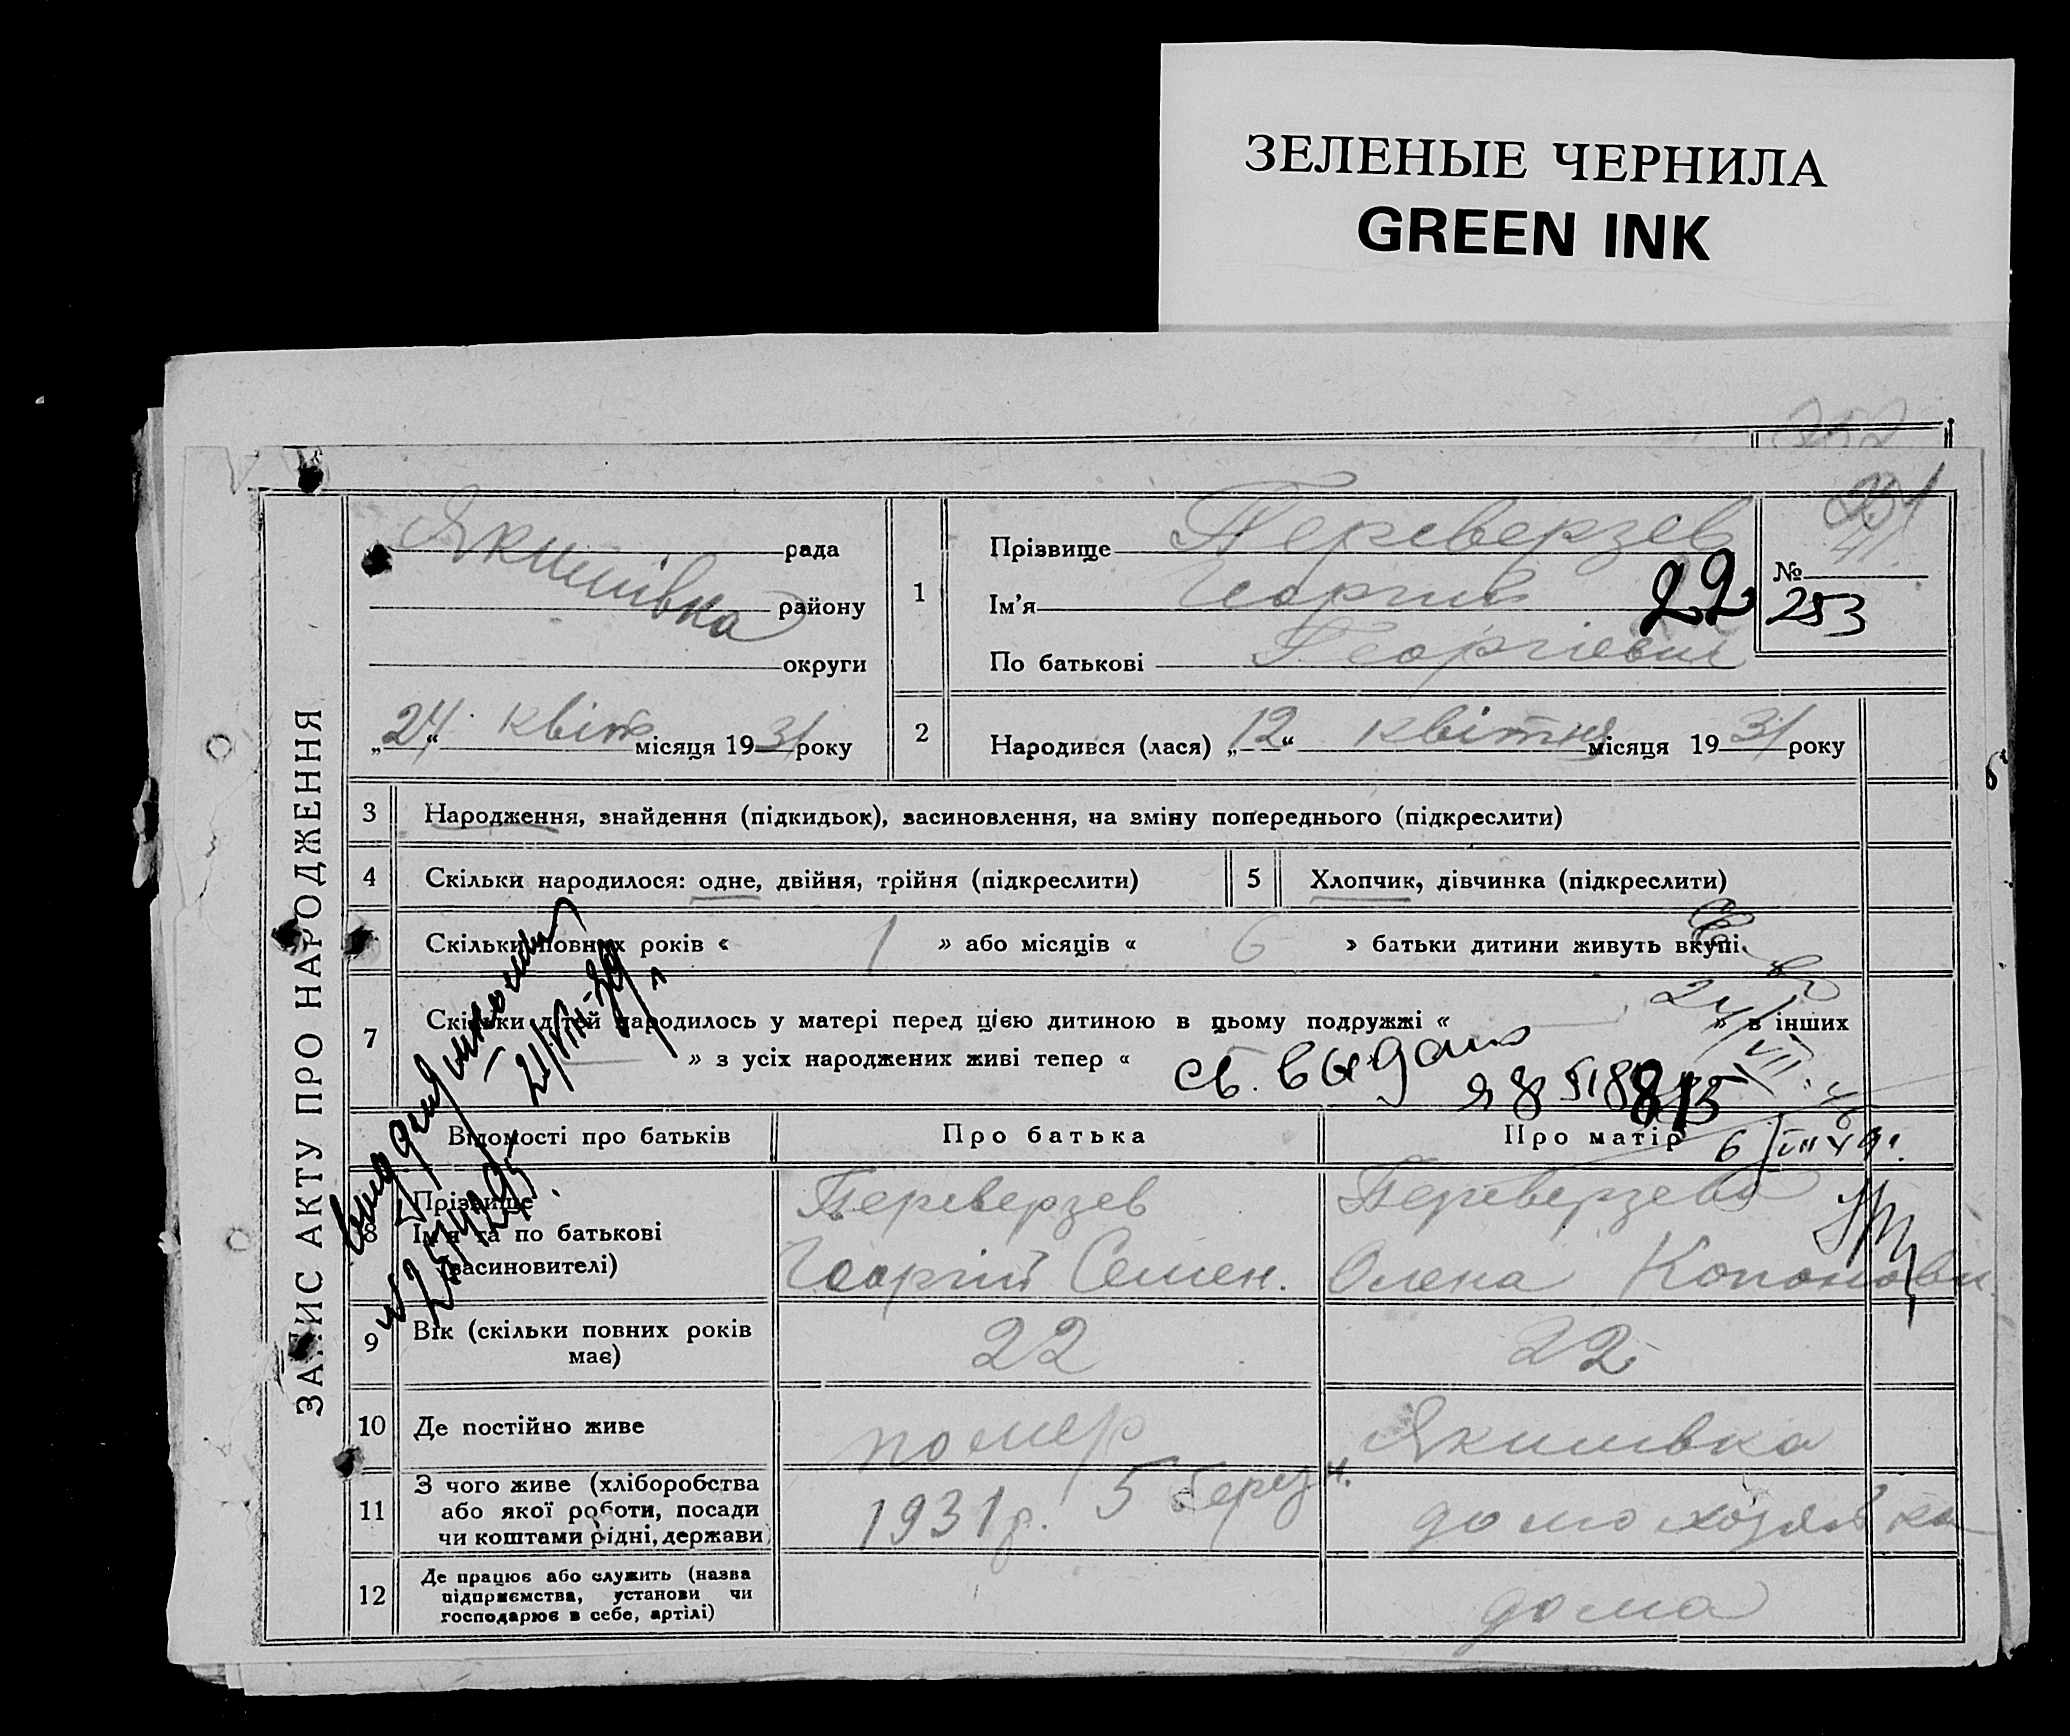 ЗЕЛЕНЫЕ ЧЕРНИЛА
GREEN INK
ЗАПИС АКТУ ПРО НАРОДЖЕННЯ
Якимівка
рада
району
округи
„24“ квіт. місяця 1931 року
1
Прізвище Переверзев
Ім'я Георгий
По батькові Георгієвич
22
№
41
253
2
Народився (лася) „12“ квітня місяця 1931 року
3
Народження, знайдення (підкидьок), засиновлення, на зміну попереднього (підкреслити)
4
Скільки народилося: одне, двійня, трійня (підкреслити)
5
Хлопчик, дівчинка (підкреслити)
Скільки повних років « 1 » або місяців « 6 » батьки дитини живуть вкупі.
7
Скільки дітей народилось у матері перед цією дитиною в цьому подружжі « — » в інших
— » з усіх народжених живі тепер «
св. выдано
21/VIII-39
6/VII 49.
Відомості про батьків
Про батька
Про матір
8
Прізвище
Ім'я та по батькові
(засиновителі)
Переверзев
Георгій Семен.
Переверзева
Олена Кононовн.
9
Вік (скільки повних років
має)
22
22
10
Де постійно живе
помер
Якимівка
11
З чого живе (хліборобства
або якої роботи, посади
чи коштами рідні, держави)
1931 р. 5 березн.
домохозяйка
12
Де працює або служить (назва
підприємства, установи чи
господарює в себе, артілі)
дома